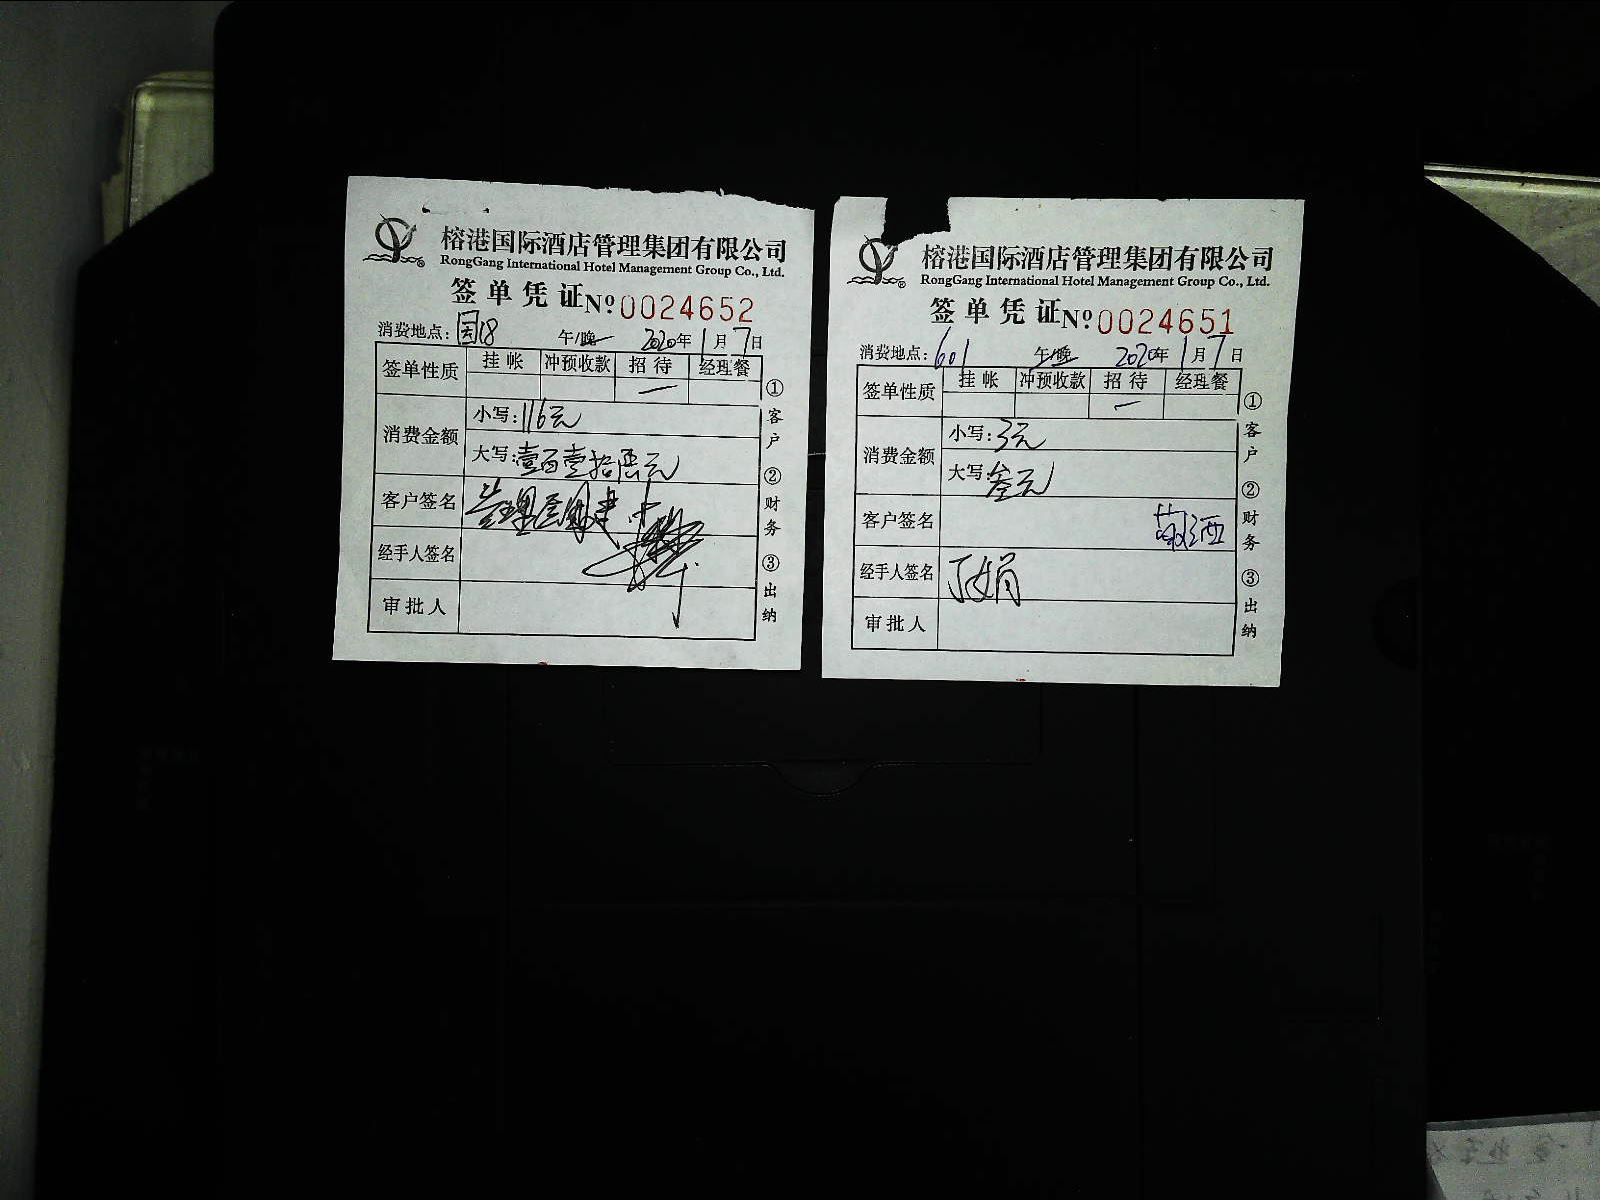 榕港国际酒店管理集团有限公司
RongGang International Hotel Management Group Co., Ltd.
签单凭证 №0024652
消费地点：园18 午/晚 2020年1月7日
签单性质 挂帐 冲预收款 招待 经理餐
消费金额
小写：116元
大写：壹百壹拾陆元
客户签名
经手人签名
审批人
①客户 ②财务 ③出纳
榕港国际酒店管理集团有限公司
RongGang International Hotel Management Group Co., Ltd.
签单凭证 №0024651
消费地点：601 午/晚 2020年1月7日
签单性质 挂帐 冲预收款 招待 经理餐
消费金额
小写：3元
大写：叁元
客户签名 敬酒
经手人签名 丁女娟
审批人
①客户 ②财务 ③出纳